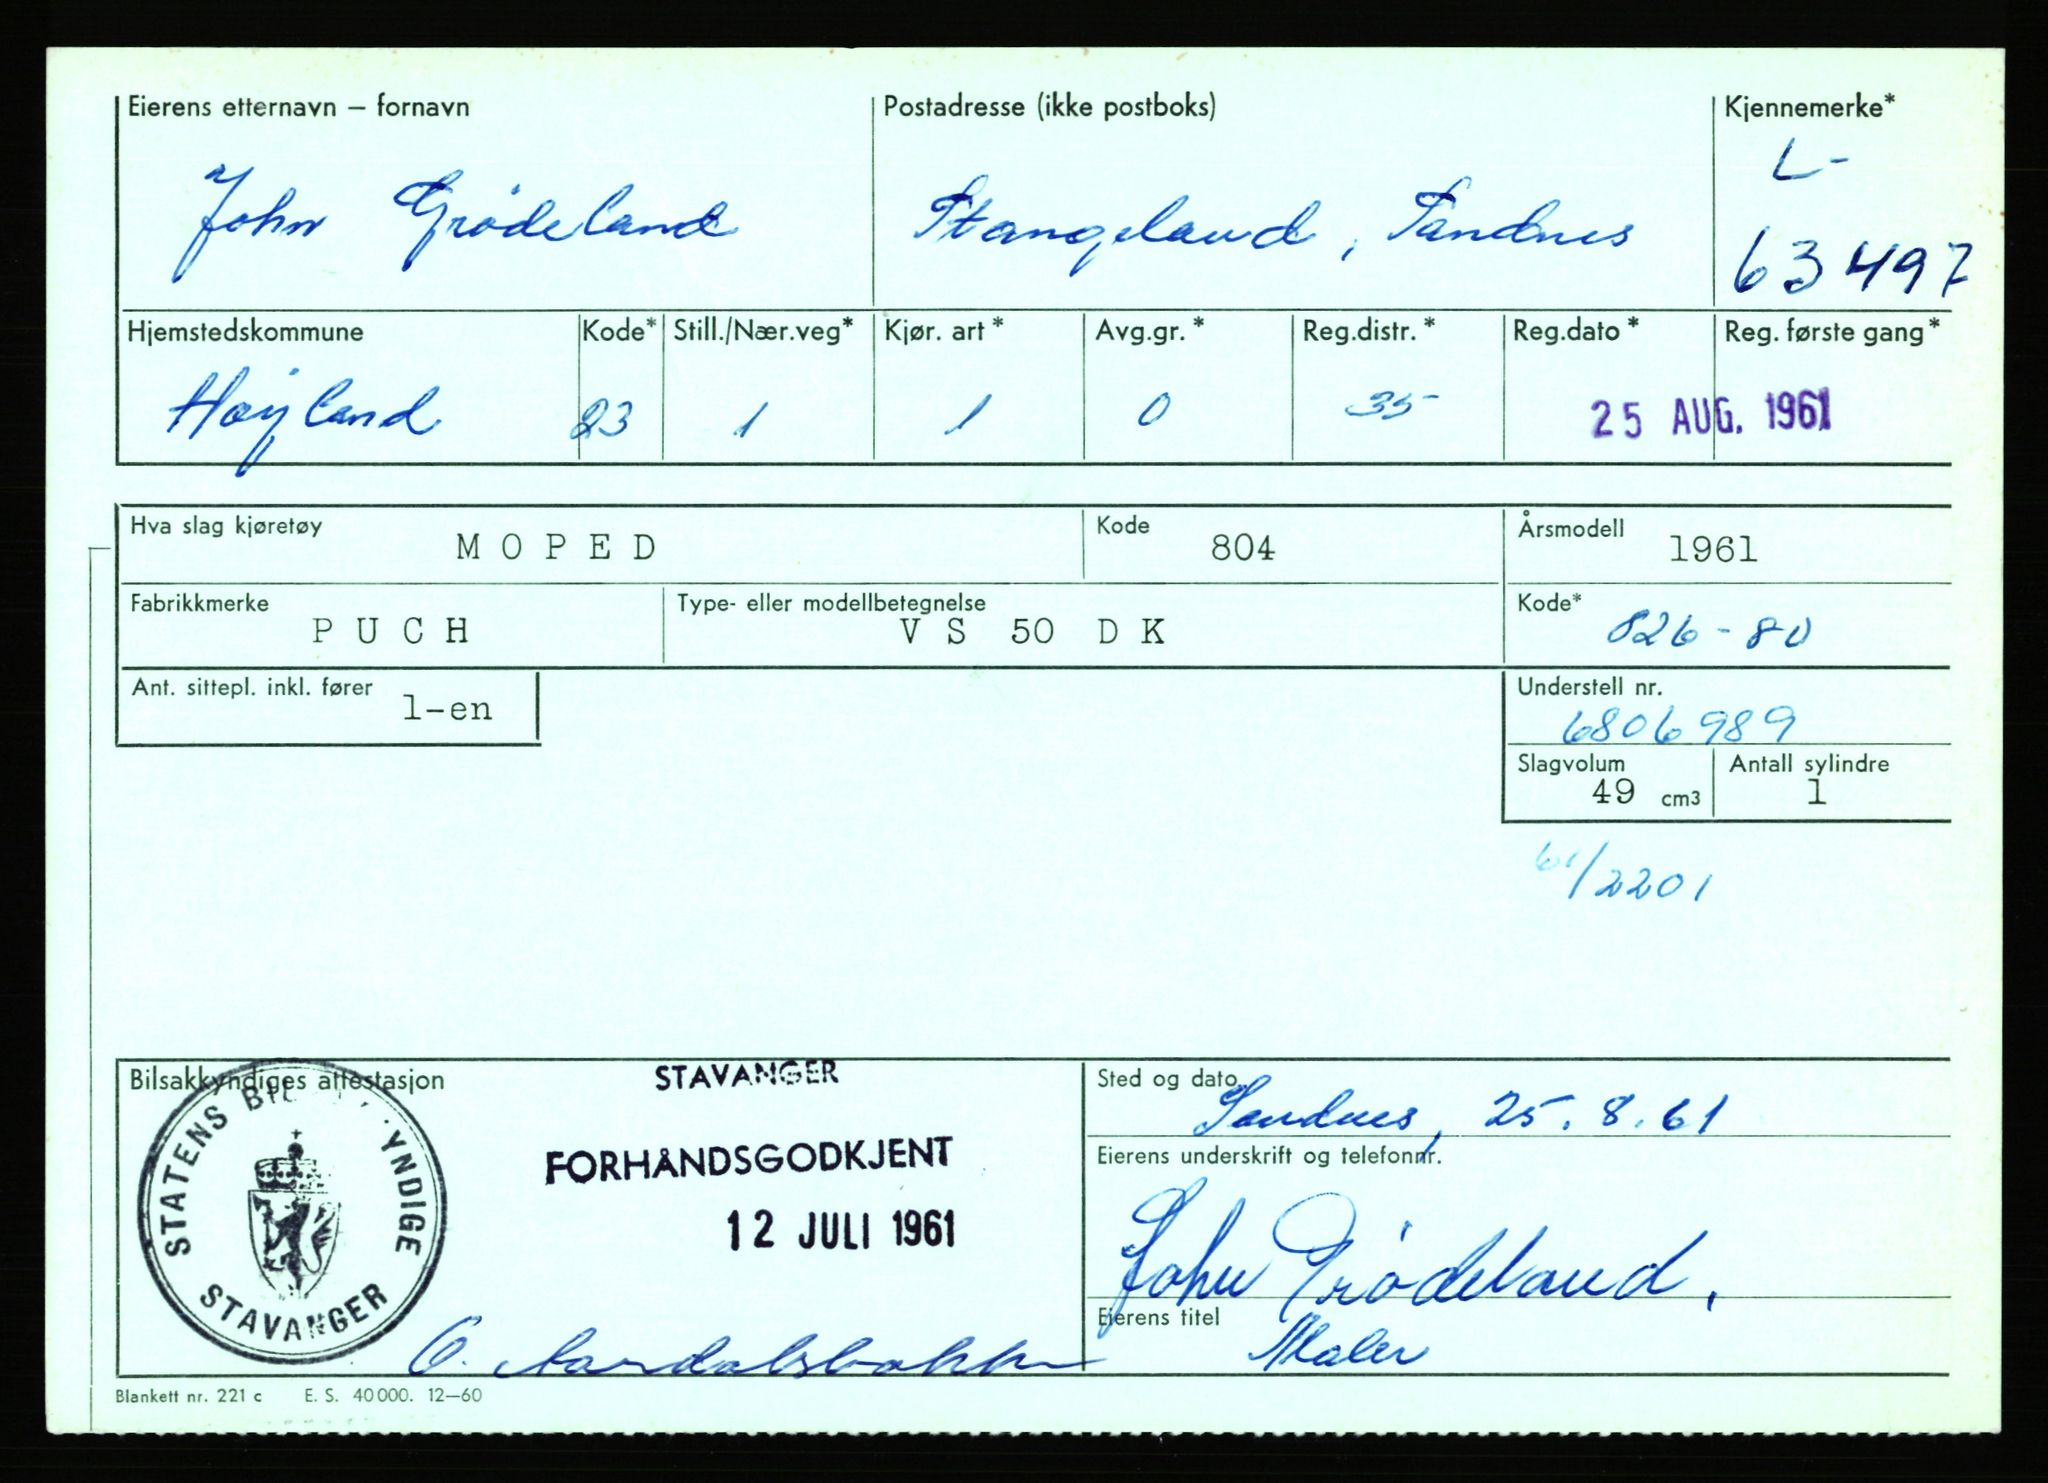 Eierens etternavn – fornavn Postadresse (ikke postboks) Kjennemerke*
L-
John Grødeland Stangeland, Sandnes
63497
Hjemstedskommune Kode* Still./Nær.veg* Kjør. art* Avg.gr.* Reg.distr.* Reg.dato* Reg. første gang*
Høyland 23 1 1 0 35 25 AUG. 1961
Hva slag kjøretøy MOPED Kode 804 Årsmodell 1961
Fabrikkmerke PUCH Type- eller modellbetegnelse VS 50 DK Kode* 826-80
Ant. sittepl. inkl. fører 1-en Understell nr.
6806989
Slagvolum 49 cm3 Antall sylindre 1
61/2201
Bilsakkyndiges attestasjon STAVANGER Sted og dato
Sandnes, 25.8.61
STATENS BIL YNDIGE
STAVANGER
FORHÅNDSGODKJENT Eierens underskrift og telefonnr.
12 JULI 1961 John Grødeland.
Eierens titel
Maler
Blankett nr. 221 c E. S. 40000. 12—60